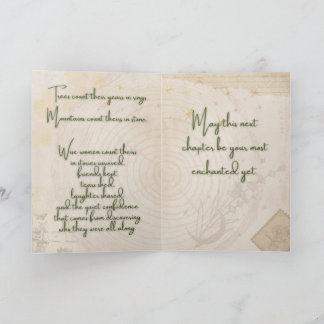 Trees count their years in rings,
Mountains count theirs in stone.
Wise women count theirs
in stories weaved,
friends kept,
tears shed,
laughter shared,
and the quiet confidence
that comes from discovering
who they were all along.
May this next
chapter be your most
enchanted yet.